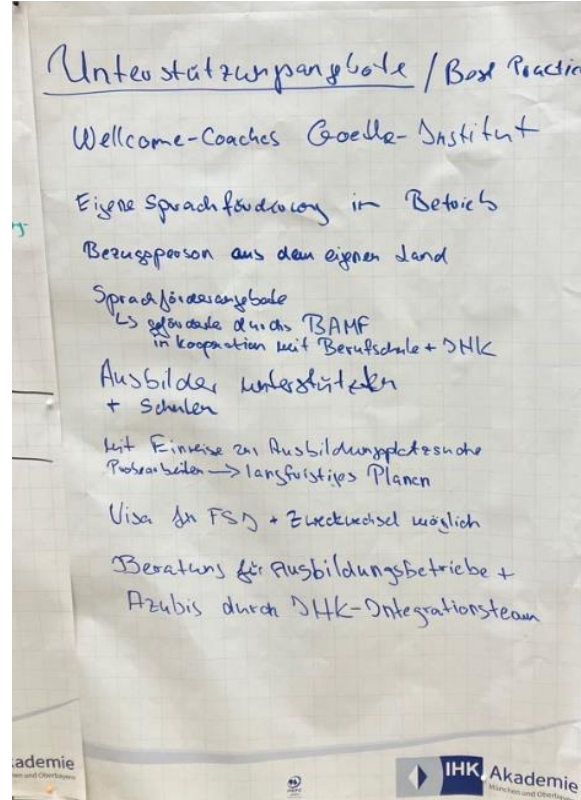 Unterstützungsangebote / Best Practice
Wellcome-Coaches Goethe-Institut
Eigene Sprachförderung im Betrieb
Bezugsperson aus dem eigenen Land
Sprachförderangebote
↳ geförderte durchs BAMF
in Kooperation mit Berufschule + IHK
Ausbilder unterstützen
+ Schulen
Mit Einreise zur Ausbildungsplatzsuche
Probearbeiten → langfristiges Planen
Visa für FSJ + Zweckwechsel möglich
Beratung für Ausbildungsbetriebe +
Azubis durch IHK-Integrationsteam
ademie
hen und Oberbayern
IHK Akademie
München und Oberbayern